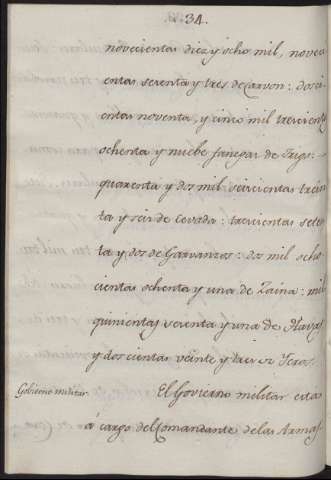 34.
novecientas diez y ocho mil, noveci
entas setenta y tres de Carvon: dosci
entas noventa, y cinco mil trecient
ochenta y nuebe fanegas de Trigo:
quarenta y dos mil seiscientas trein
ta y seis de Cevada: trecientas seten
ta y dos de Garvanzos: dos mil ocho
cientas ochenta y una de Zaina: mil
quinientas y una de Havas
y doscientas veinte y tres
Gobierno militar. El Govierno militar esta
á cargo del Comandante de las Armas